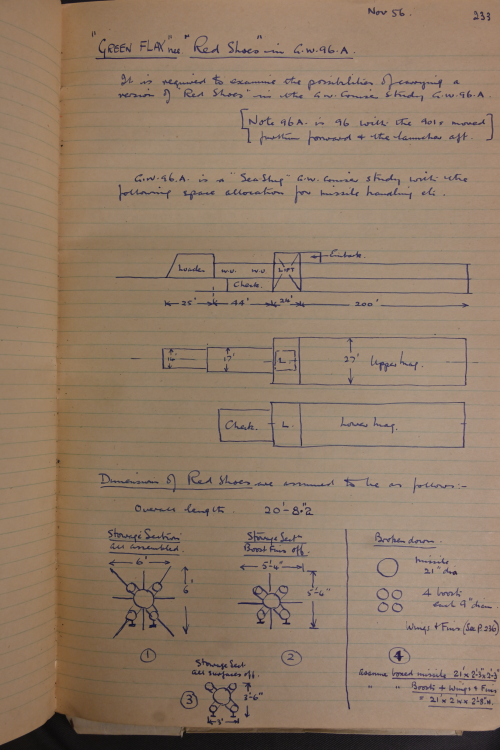 Nov 56.
233
"GREEN FLAX" née "Red Shoes" in G.W.96.A.
It is required to examine the possibilities of carrying a
version of "Red Shoes" in the G.W. Cruiser Study G.W.96.A.
[Note 96A. is 96 with the 901s moved
further forward & the launcher aft.]
G.W.96.A. is a "Sea Slug" G.W. Cruiser study with the
following space allocation for missile handling etc.
Loader
W.U.
W.U
LIFT
Embark.
Check.
25'
44'
26'
200'
14'
17'
L
27'
Upper Mag.
Check.
L.
Lower Mag.
Dimensions of Red Shoes are assumed to be as follows:-
Overall length. 20'-8."2
Stowage Section
all assembled.
6'
6'
①
Stowage Sectn
Boost Fins off.
5'-4"
5'-4"
②
Stowage Sect
all surfaces off.
③
2'-6"
3'
Broken down.
missile
21" dia
4 boosts
each 9" diam.
Wings & Fins (See P.236)
④
assume boxed missile 21' x 2'-3" x 2'-3"
" " Boosts + Wings & Fins